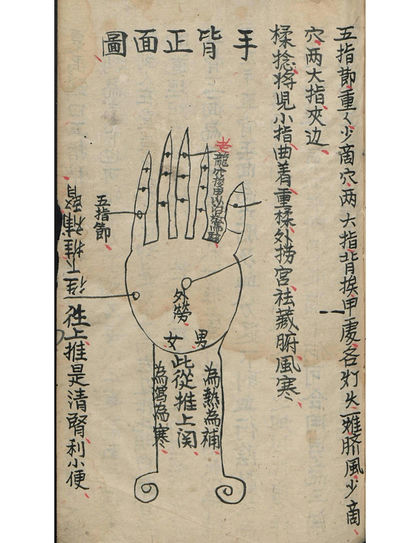 五指節重く少商穴两大指背挨甲處各灯火一雅脐風少商
穴两大指夾边
楺捻将児小指曲着重楺外捞宮祛藏腑風寒
手背正面圖
老龍
五指節
外勞
男
女
為熱為補
此從推上関
為瀉為寒
往下推補腎
往上推是清腎利小便